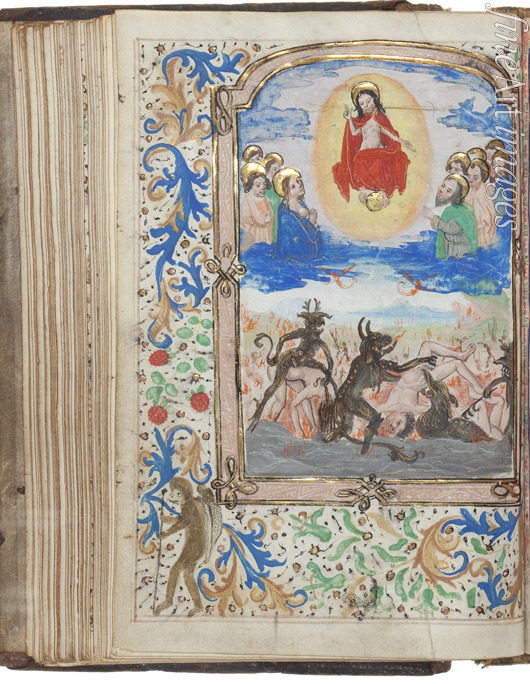 Fine Art Images